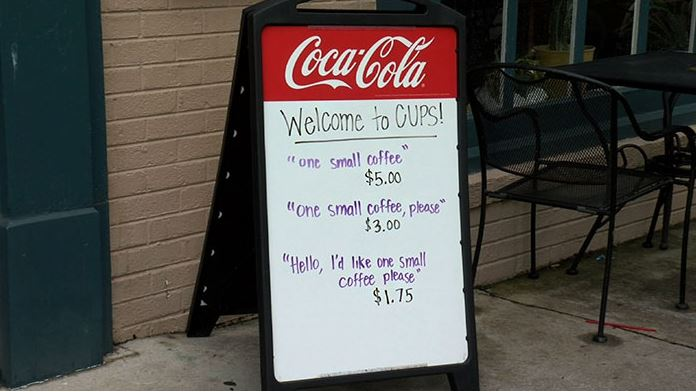 Coca-Cola
Welcome to CUPS!
"one small coffee"
$5.00
"One small coffee, please"
$3.00
"Hello, I'd like one small
coffee please"
$1.75